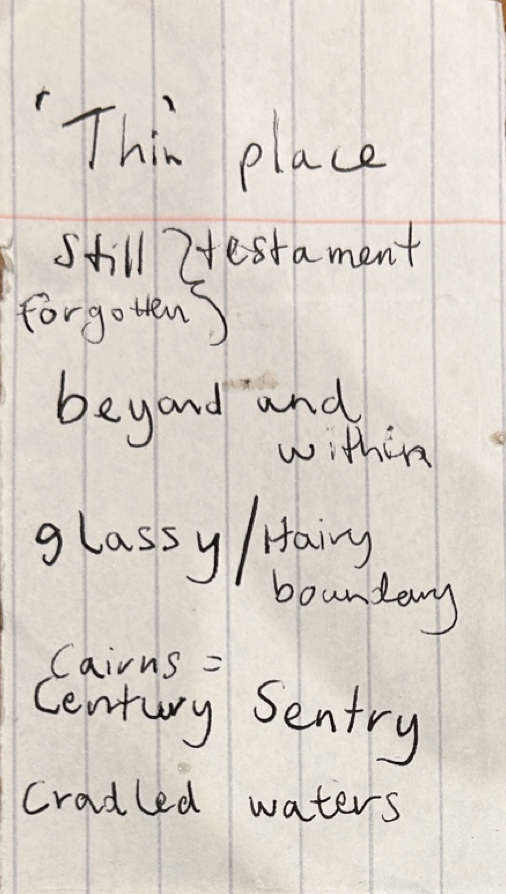 'Thin' place
still } testament
forgotten }
beyond and
within
glassy / Hairy
boundary
Cairns =
Century Sentry
Cradled waters